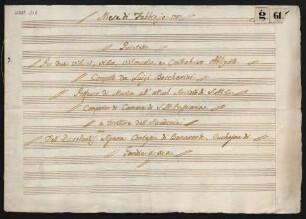 Mese di Febbrajo 179
Quintetto
Per due violini, viola, violoncello, e Contrabasso
Composto da Luigi Boccherini
Professore di Musica all' attual Servizio di S.M.C.
Compositor di Camera di S.M. Prussiana
e Direttore dell' Accademia
Dell' Eccellentis. Signora Contessa di Benavente, Duchessa di
Gandia &c. &c. &c.